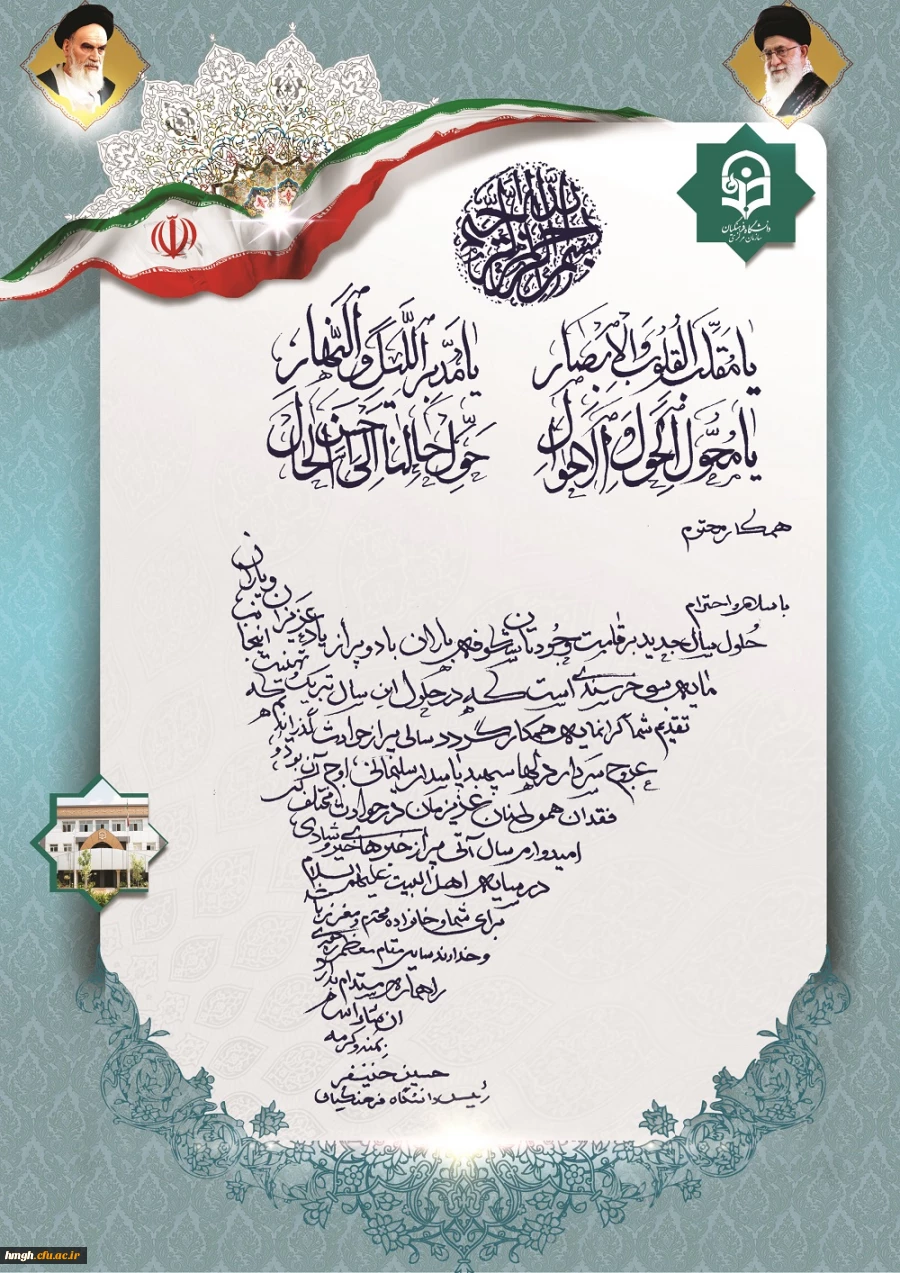 دانشگاه فرهنگیان
سازمان مرکزی
بسم الله الرحمن الرحیم
یا مقلب القلوب والابصار یا مدبر اللیل والنهار
یا محول الحول والاحوال حول حالنا الی احسن الحال
همکار محترم
با سلام و احترام
حلول سال جدید بر قامت وجودتان شکوفه باران باد و پر از یاد عزیزان و یاران
مایه خرسندی است که در حلول این سال تبریک و تهنیت اینجانب
تقدیم شما گرانمایه همکار گردد سالی پر از حوادث گذراندیم که
عروج سردار دلها سپهبد پاسدار سلیمانی اوج آن بود و
فقدان هموطنان عزیزمان در حوادث مختلف
امیدوارم سال آتی پر از خبرهای خیر و شادی
در سایه اهل البیت علیهم السلام
برای شما و خانواده محترم و معزز باشد
و خداوند سایه مقام معظم رهبری
را همواره مستدام بدارد
ان شاء الله
بمنه و کرمه
حسین خنیفر
رئیس دانشگاه فرهنگیان
hmgh.cfu.ac.ir